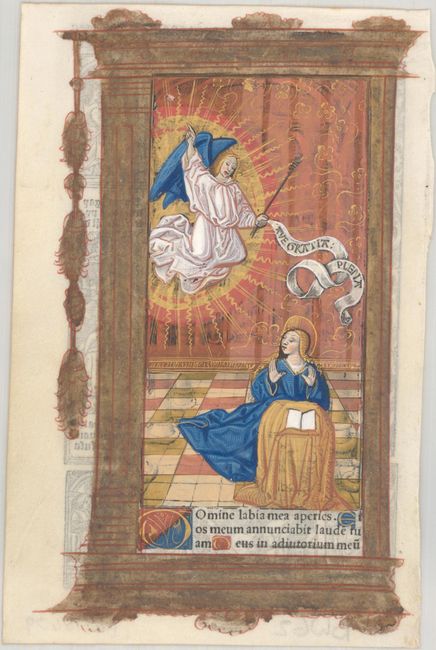 AVE GRATIA:
PLENA
Omine labia mea aperies. Et
os meum annunciabit laudē tu
am Deus in adiutorium meū